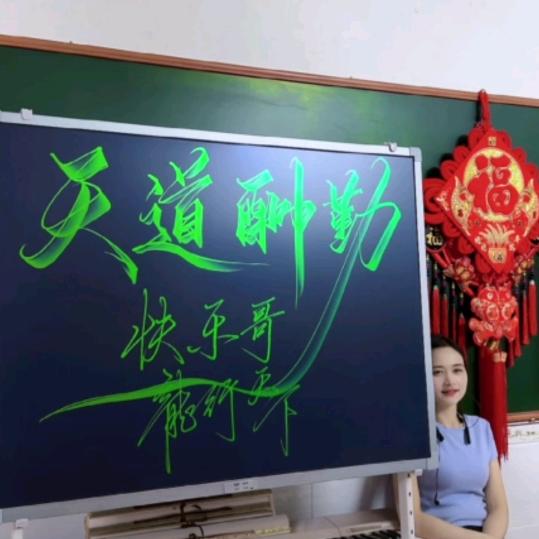 天道酬勤
快乐哥
龍行天下
福